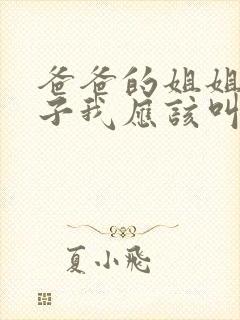 爸爸的姐姐
子我应该叫
夏小飛